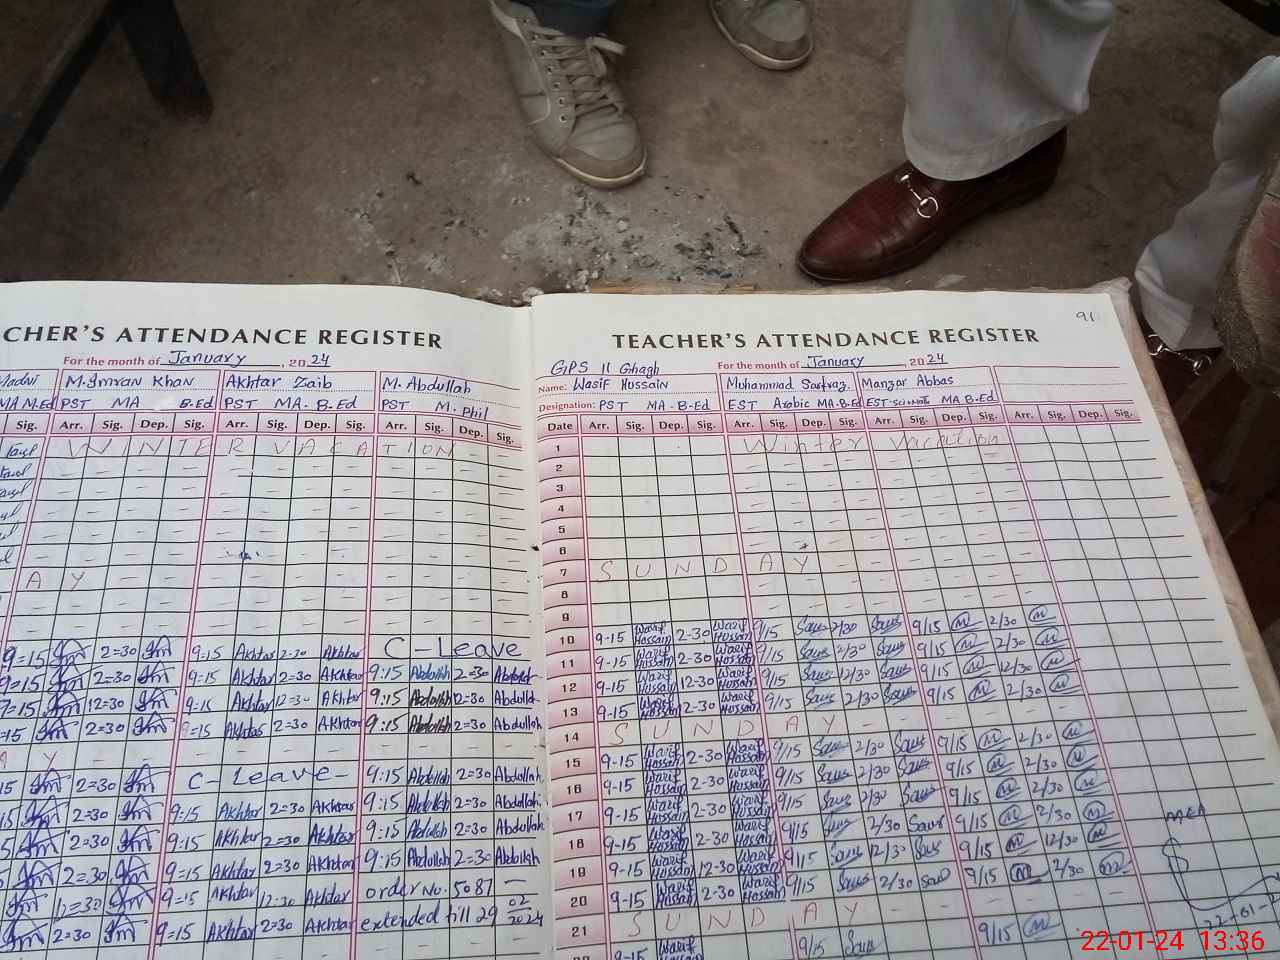 91
CHER'S ATTENDANCE REGISTER
For the month of January, 2024
Madni M. Imran Khan Akhtar Zaib M. Abdullah
MA M.Ed PST MA B.Ed PST MA. B.Ed PST M. Phil
Sig. Arr. Sig. Dep. Sig. Arr. Sig. Dep. Sig. Arr. Sig. Dep. Sig.
WINTER VACATION
A Y
9=15 2=30 9:15 Akhtar 2-30 Akhtar C-Leave
9=15 2=30 9:15 Akhtar 2=30 Akhtar 9:15 Abdullah 2=30 Abdullah
9=15 12=30 9:15 Akhtar 12=30 Akhtar 9:15 Abdullah 12=30 Abdullah
=15 2=30 9=15 Akhtar 2=30 Akhtar 9:15 Abdullah 2=30 Abdullah
A Y
15 2=30 C-Leave- 9:15 Abdullah 2=30 Abdullah
15 2=30 9=15 Akhtar 2=30 Akhtar 9:15 Abdullah 2=30 Abdullah
5 2=30 9:15 Akhtar 2=30 Akhtar 9:15 Abdullah 2=30 Abdullah
2=30 9=15 Akhtar 2=30 Akhtar 9:15 Abdullah 2=30 Abdullah
12=30 9=15 Akhtar 12=30 Akhtar order No. 5087
2=30 9=15 Akhtar 2=30 Akhtar extended till 29 02 2024
TEACHER'S ATTENDANCE REGISTER
GPS 11 Ghagh For the month of January, 2024
Name: Wasif Hussain Muhammad Sarfraz. Manzar Abbas
Designation: PST MA. B-Ed EST Arabic MA.B.Ed EST-sci-math MA B.Ed
Date Arr. Sig. Dep. Sig. Arr. Sig. Dep. Sig. Arr. Sig. Dep. Sig. Arr. Sig. Dep. Sig.
1 Winter Vacation
2
3
4
5
6
7 SUNDAY
8
9
10 9-15 Wasif Hussain 2-30 Wasif Hussain 9/15 2/30 9/15 2/30
11 9-15 Wasif Hussain 2-30 Wasif Hussain 9/15 2/30 9/15 2/30
12 9-15 Wasif Hussain 12-30 Wasif Hussain 9/15 12/30 9/15 12/30
13 9-15 Wasif Hussain 2-30 Wasif Hussain 9/15 2/30 9/15 2/30
14 SUNDAY
15 9-15 Wasif Hussain 2-30 Wasif Hussain 9/15 2/30 9/15 2/30
16 9-15 Wasif Hussain 2-30 Wasif Hussain 9/15 2/30 9/15 2/30
17 9-15 Wasif Hussain 2-30 Wasif Hussain 9/15 2/30 9/15 2/30
18 9-15 Wasif Hussain 2-30 Wasif Hussain 9/15 2/30 9/15 2/30
19 9-15 Wasif Hussain 12-30 Wasif Hussain 9/15 12/30 9/15 12/30
20 9-15 Wasif Hussain 2-30 Wasif Hussain 9/15 2/30 9/15 2/30
21 SUNDAY
9-15 Wasif Hussain 9/15 9/15
MEA
22-01-2
22-01-24 13:36